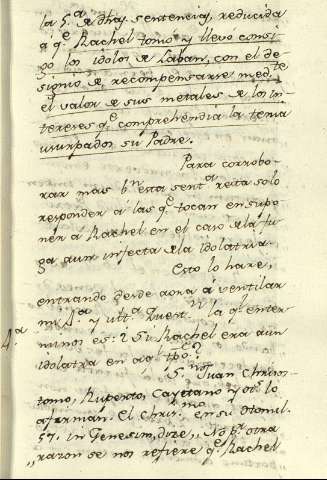 la 5.ª de dhas sentencias, reducida
á q.e Rachel tomo y llevo consi-
go los idolos de Laban, con el de-
signio de recompensarse med.te
el valor de sus metales de los in-
tereses q.e comprehendia la tenia
usurpados su Padre.
Para corrobo-
rar mas b.n esta sent.a resta solo
responder á las q.e tocan en supo-
nér á Rachel en el caso de la fu-
ga aun infecta de la idolatria.
Esto lo hare,
entrando desde aora á ventilar
mi 4.ª y ult.a Quest.n la q.l en ter-
4.ª
minos es: ¿ Si Rachel era aun
idolatra en aq.l tpo?
S.n Juan Chrisos-
tomo, Ruperto, Cayetano y ot.s lo
afirman. El Chris.mo en su Homil.
57. in Genesim, dice,, No p.r otra
,, razon se nos refiere q.e Rachel